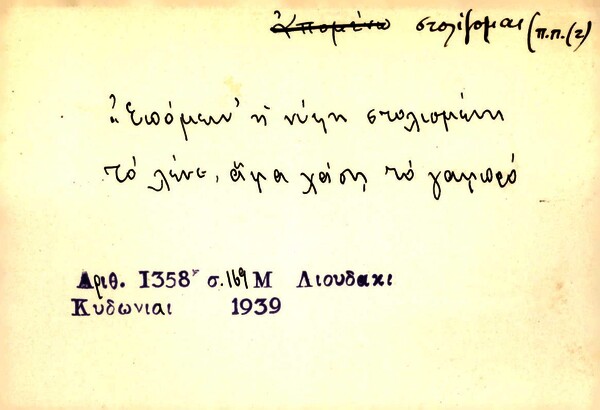 ἀπομένω στολίζομαι (π.π.(2)
"Ἐπόμειν' ἡ νύφη στολισμένη
τὸ λένε, ἅμα χάση τὸ γαμπρό
Αριθ. 1358 σ. 169 Μ Λιουδακι
Κυδωνιαι 1939